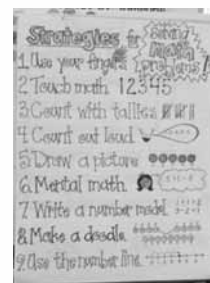 Strategies for Solving math problems!
1. Use your fingers
2. Touch math 1 2 3 4 5
3. Count with tallies
4. Count out loud
5. Draw a picture
6. Mental math
7. Write a number model
8. Make a doodle
9. Use the number line